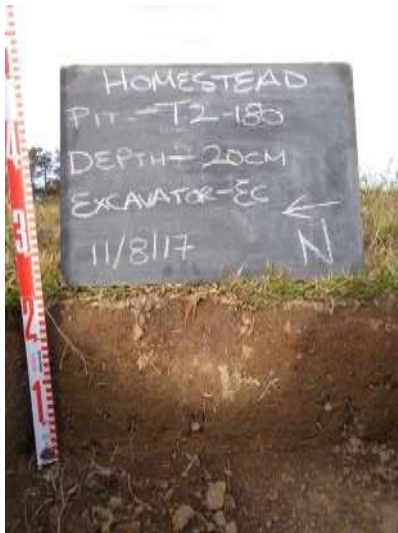 HOMESTEAD
PIT.-T2-180
DEPTH-20CM
EXCAVATOR-EC
11/8/17 N
4
3
2
1